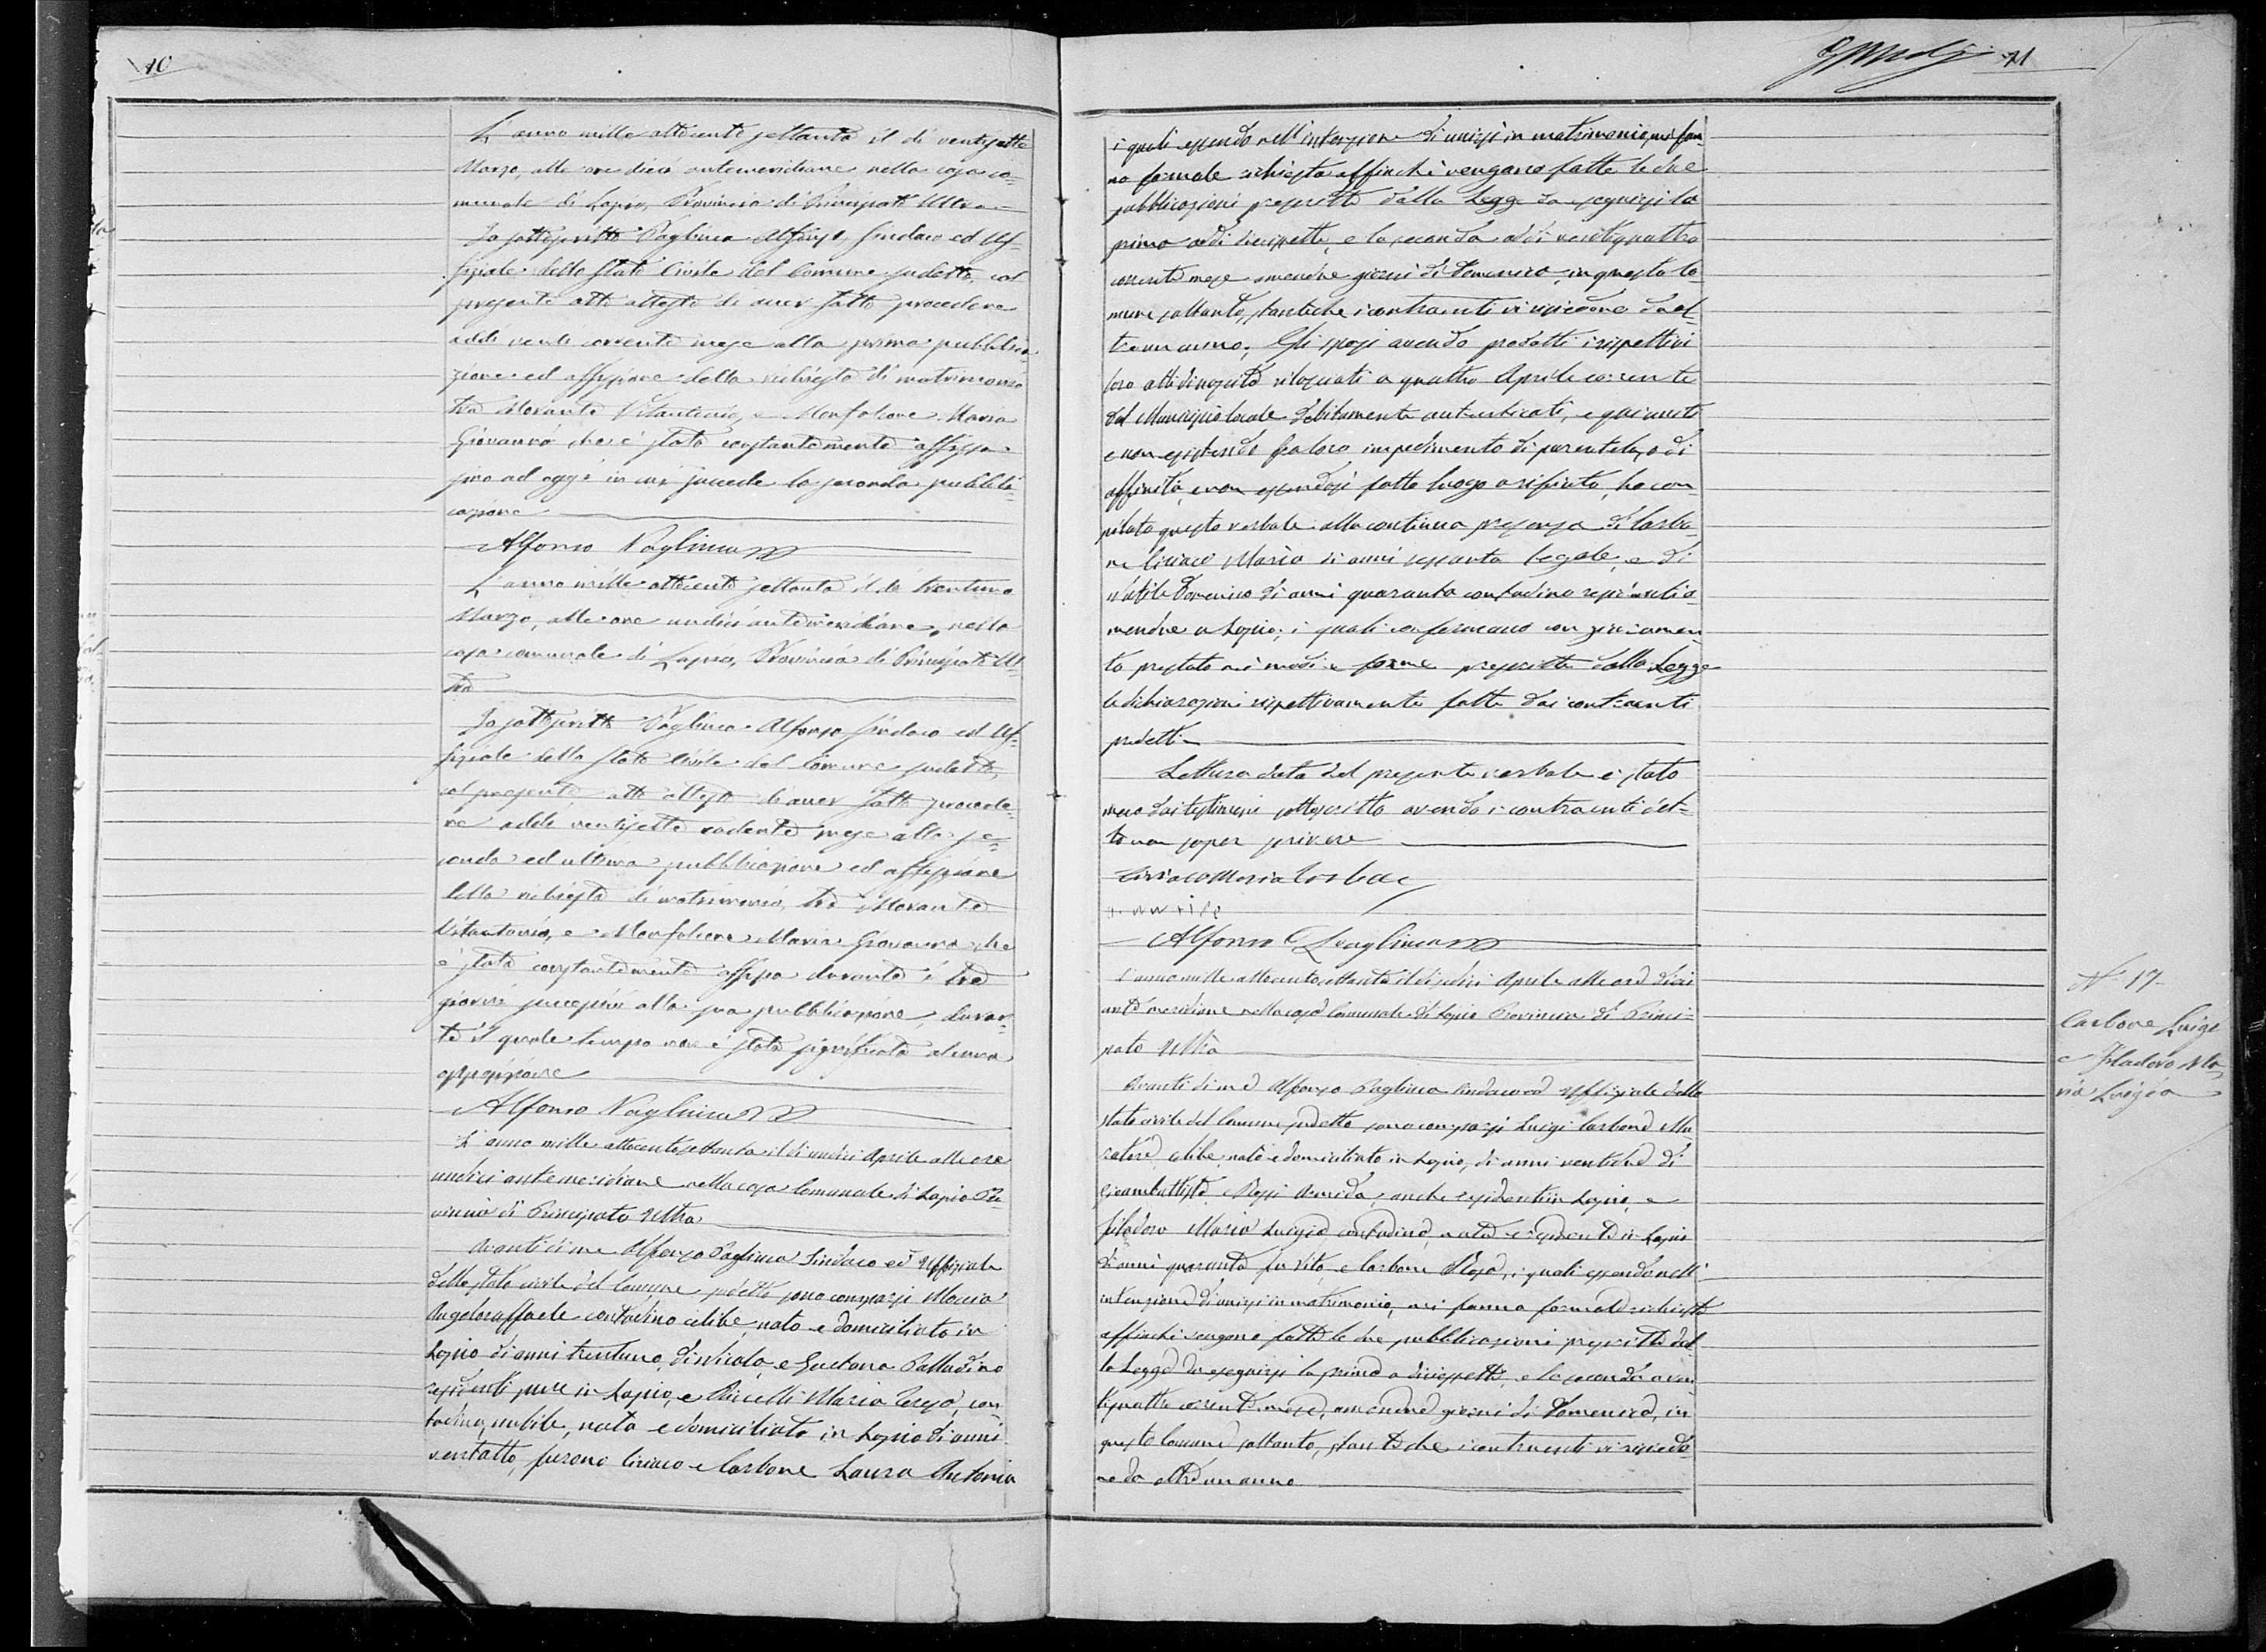 10
L'anno mille ottocento settanta il dì ventisette
Marzo, alle ore dieci antemeridiane nella casa co=
munale di Lapio, Provincia di Principato Ultra
Io sottoscritto Paglino Alfonso, Sindaco ed Uf=
fiziale dello Stato Civile del Comune sudetto, col
presente atto attesto di aver fatto procedere
addì venti corrente mese alla prima pubblica=
zione ed affissione della richiesta di matrimonio
tra Morante Vitantonio, e Monfalcone Maria
Giovanna che è stata costantemente affissa
sino ad oggi in cui succede la seconda pubbli=
cazione
Alfonso Paglino
L'anno mille ottocento settanta il dì trentuno
Marzo, alle ore undici antimeridiane, nella
casa comunale di Lapio, Provincia di Principato Ul=
tra
Io sottoscritto Paglino Alfonso Sindaco ed Uf=
fiziale dello Stato Civile del Comune sudetto,
col presente atto attesto di aver fatto procede=
re addì ventisette cadente mese alla se=
conda ed ultima pubblicazione ed affissione
della richiesta di matrimonio tra Morante
Vitantonio, e Monfalcone Maria Giovanna che
è stata costantemente affissa durante i tre
giorni successivi alla sua pubblicazione, duran=
te il quale tempo non è stata significata alcuna
opposizione
Alfonso Paglino
L'anno mille ottocento settanta il dì undici Aprile alle ore
undici antemeridiane nella casa Comunale di Lapio Pro
vincia di Principato Ultra
Avanti di me Alfonso Paglino Sindaco ed Uffiziale
dello stato civile del Comune sudetto sono comparsi
Angeloraffaele contadino celibe, nato e domiciliato in
Lapio di anni trentuno, di Nicola, e Gaetana Palladino
residenti pure in Lapio, e Maria Teresa, con
tadina, nubile, nata e domiciliata in Lapio di anni
ventotto, furono Ciriaco e Carbone Laura Antonia
21
i quali essendo nell'intenzione di unirsi in matrimonio, mi fan=
no formale richiesta affinchè vengano fatte le due
pubblicazioni prescritte dalla Legge da eseguirsi la
prima addì diciassette, e la seconda addì ventiquattro
corrente mese amendue giorni di Domenica, in questo Co=
mune soltanto, stantechè i contraenti vi risiedono da ol=
tre un anno. Gli sposi avendo prodotti i rispettivi
loro atti di nascita rilasciati a quattro Aprile corrente
dal Municipio locale debitamente autenticati, e quì uniti
e non esistendo fra loro impedimento di parentela, o di
affinità, e non essendosi fatto luogo a rifiuto, ho com=
pilato questo verbale alla continua presenza di Carbo=
ne Ciriaco Maria di anni sessanta legale, e di
Domenico di anni quaranta contadino residenti a=
mendue a Lapio; i quali confermano con giuramen=
to prestato nei modi e forme prescritte dalla Legge
le dichiarazioni rispettivamente fatte dai contraenti
sudetti
Lettura data del presente verbale è stato
meco dai testimoni sottoscritto avendo i contraenti det=
to non saper scrivere
Ciriaco Maria Carbone
Alfonso Paglino
L'anno mille ottocento settanta il dì sedici Aprile alle ore dieci
ante meridiane nella casa Comunale di Lapio Provincia di Princi=
pato Ultra
Avanti di me Alfonso Paglino Sindaco ed Uffiziale dello
stato civile del Comune sudetto sono comparsi Luigi Carbone Mu
ratore celibe, nato e domiciliato in Lapio, di anni ventidue di
Giambattista e Rossi Armida, anche residenti in Lapio, e
Filadoro Maria Luigia contadina, nata e residente in Lapio
di anni quaranta fu Vito, e Carbone Rosa, i quali essendo nell'
intenzione di unirsi in matrimonio, mi fanno formale richiesta
affinchè vengano fatte le due pubblicazioni prescritte dal=
la Legge da eseguirsi la prima a diciassette, e la seconda a ven
tiquattro corrente mese, amendue giorni di Domenica, in
questo Comune soltanto, stantechè i contraenti vi risiedo=
no da oltre un anno
N. 17
Carbone Luigi
e Filadoro Ma
ria Luigia